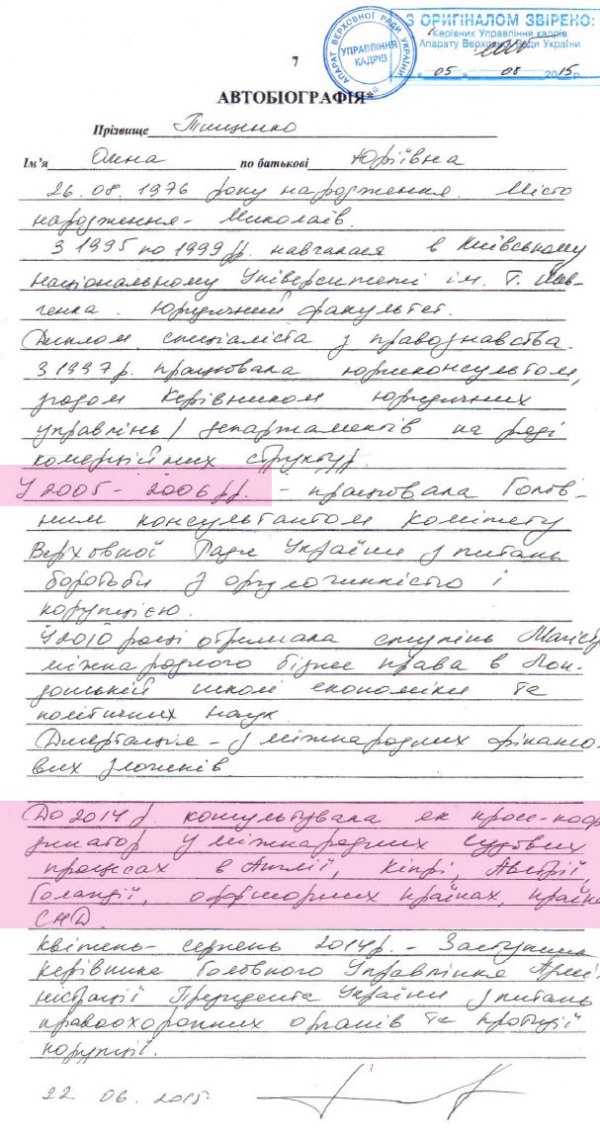 З ОРИГІНАЛОМ ЗВІРЕНО:
Керівник Управління кадрів
Апарату Верховної Ради України
« 05 » 08 2015 р.
АПАРАТ ВЕРХОВНОЇ РАДИ УКРАЇНИ
УПРАВЛІННЯ КАДРІВ
7
АВТОБІОГРАФІЯ*
Прізвище Тищенко
Ім'я Оянна по батькові Юріївна
26.08.1976 року народження. Місто
народження - Миколаїв.
З 1995 по 1999 рр. навчалася в Київському
національному Університеті ім. Т. Шев-
ченка. Юридичний факультет.
Диплом спеціаліста з правознавства.
З 1997 р. працювала юрисконсультом,
згодом Керівником юридичних
управлінь/департаментів на ряді
комерційних структур.
У 2005 - 2006 рр. - працювала Голов-
ним консультантом комітету
Верховної Ради України з питань
боротьби з оргзлочинністю і
корупцією.
У 2010 році отримала ступінь Магістр
міжнародного бізнес права в Лон-
донській школі економіки та
політичних наук
Дисертація - з міжнародних фінансо-
вих злочинів.
До 2014 р. консультувала як прое-коор
динатор у міжнародних судових
процесах в Англії, Кіпрі, Австрії,
Голандії, оффшорних країнах, країна
СНД.
Квітень - серпень 2014 р. - Заступник
Керівника Головного Управління Адмі-
ністрації Президента України з питань
правоохоронних органів та протидії
корупції.
22.06.2015.